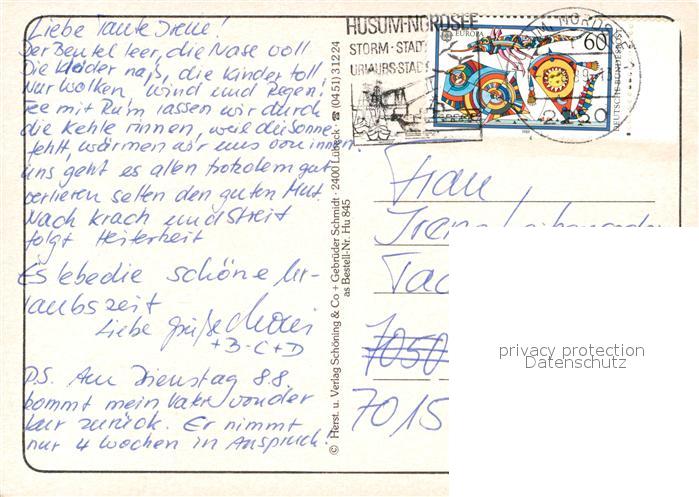 Liebe Tante Irene!
Der Beutel leer, die Nase voll
Die Kleider naß, die Kinder toll,
Nur Wolken, Wind und Regen!
Tee mit Rum lassen wir durch
die Kehle rinnen, weil die Sonne
fehlt, wärmen wir uns von innen
uns geht es allen trotzdem gut
verlieren selten den guten Mut.
Nach Krach und Streit
folgt Heiterheit
Es lebe die schöne Ur-
laubszeit
Liebe Grüße
+B-C+D
P.S. Am Dienstag 8.8.
kommt mein Vater von der
Kur zurück. Er nimmt
nur 4 Wochen in Anspruch!
© Herst. u. Verlag Schöning & Co + Gebrüder Schmidt · 2400 Lübeck · ☎ (04 51) 3 12 24
as Bestell-Nr. Hu 845
HUSUM-NORDSEE
STORM-STADT
URLAUBS-STADT
EUROPA
60
DEUTSCHE BUNDESPOST
Frau
Irene
7050
7015
privacy protection
Datenschutz